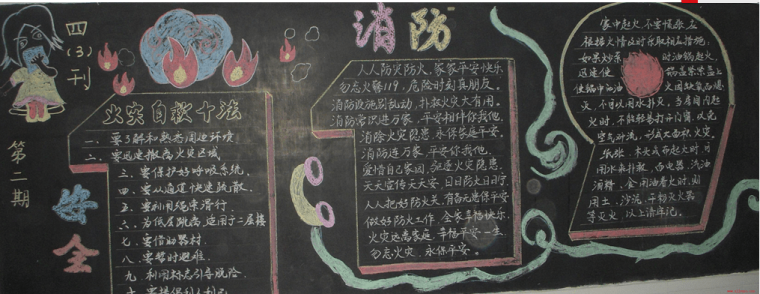 四(3)刊
第二期
安全
消防
火灾自救十法
一、要了解和熟悉周边环境
二、要迅速撤离火灾区域
三、要保护好呼吸系统,
四、要从通道快速疏散。
五、要利用绳索滑行.
六、为低层跳离 适用于二层楼
七、要借助器材.
八、要暂时避难.
九、利用标志引导脱险.
十、要提倡利人利己
人人防灾防火,家家平安快乐
勿忘火警119,危险时刻真朋友。
消防设施别乱动,扑救火灾大有用。
消防常识进万家,平安相伴你我他,
消除火灾隐患,永保家庭平安。
消防进万家,平安你我他。
爱惜自己家园,躲避火灾隐患.
天天宣传天天安,日日防火日日宁.
人人把好防火关,
做好防火工作,全家幸福快乐.
火灾远离家庭,幸福平安一生.
勿忘火灾,永保平安。
家中起火,不要慌张,应
根据火情及时采取相应措施:
如果炒菜时油锅起火,
迅速使锅盖紧盖上
使锅中油火因缺氧而熄
灭,不可以用水扑灭。当房间内起
火时,不能轻易打开门窗,以免
空气对流,形成大面积火灾。
纸张、木头或布起火时,可
用水来扑救,而电器、汽油
酒精、食用油着火时,则
用土、沙泥、干粉灭火器
等灭火,以上请牢记。